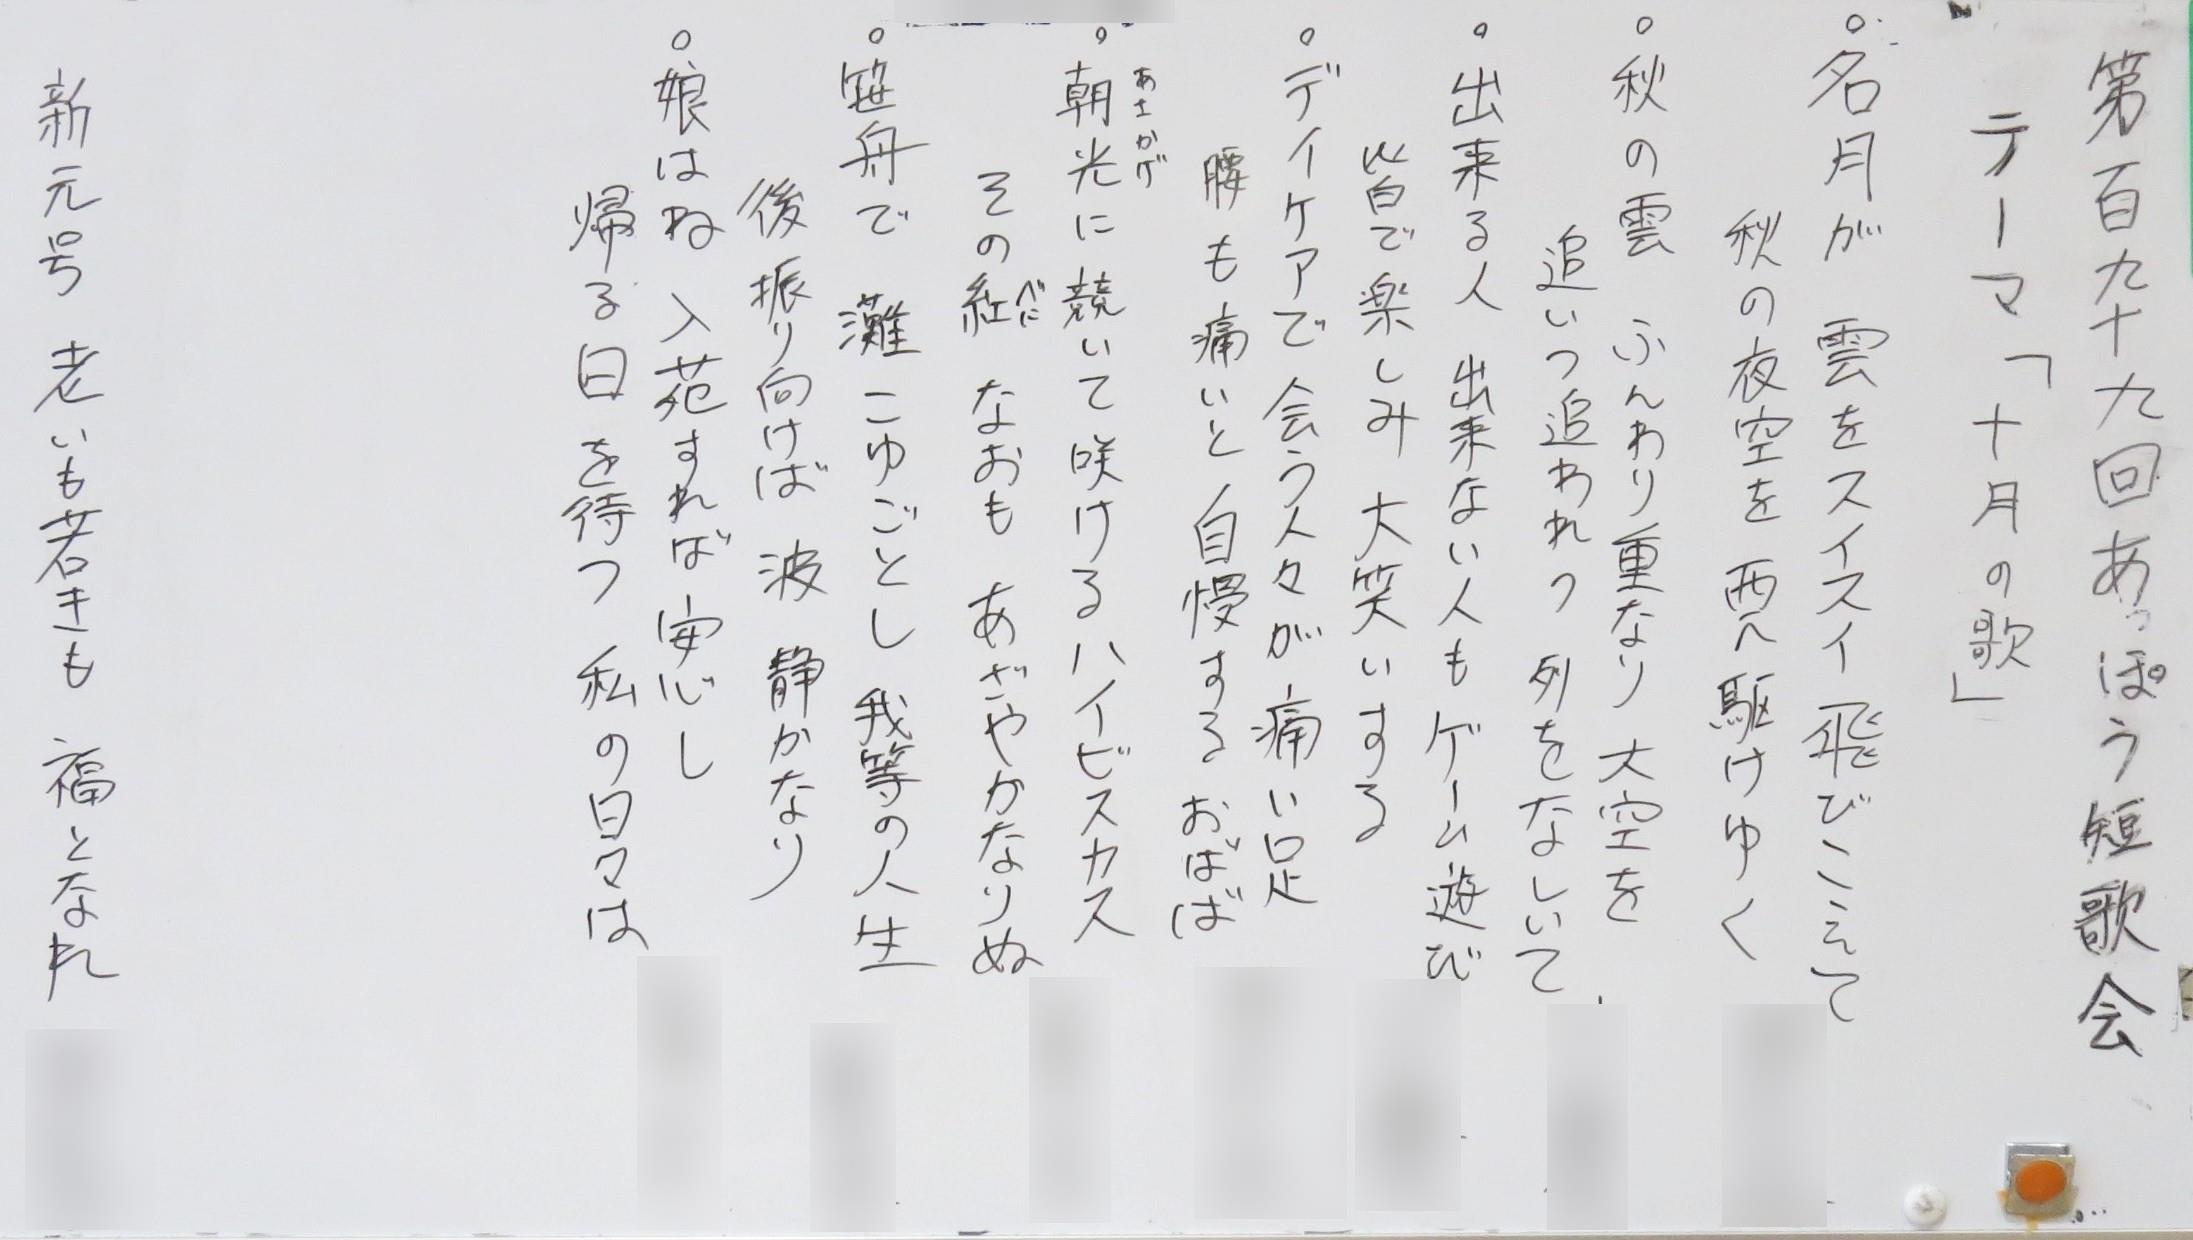 第百九十九回あっぽう短歌会
テーマ「十月の歌」
。名月が 雲をスイスイ飛びこえて
秋の夜空を 西へ駆けゆく
。秋の雲 ふんわり重なり 大空を
追いつ追われつ 列をなしいて
。出来る人 出来ない人も ゲーム遊び
皆で楽しみ 大笑いする
。デイケアで 会う人々が 痛い足
腰も痛いと 自慢する おばば
あさかげ
。朝光に 競いて咲ける ハイビスカス
べに
その紅 なおも あざやかなりぬ
。笹舟で 灘 こゆごとし 我等の人生
後振り向けば 波 静かなり
。娘はね 入苑すれば 安心し
帰る日を待つ 私の日々は
新元号 老いも若きも 福となれ